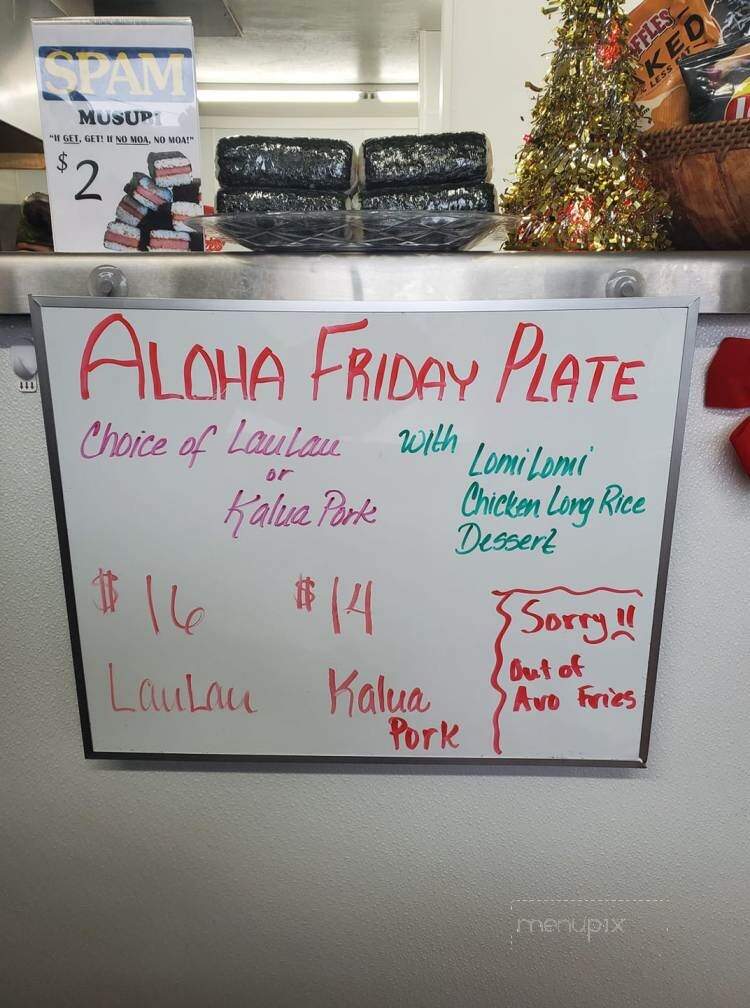 SPAM
MUSUBI
"If GET, GET! If NO MOA, NO MOA!"
$2
RUFFLES
BAKED
LESS FAT
ALOHA FRIDAY PLATE
Choice of LauLau
or
Kalua Pork
with
LomiLomi
Chicken Long Rice
Dessert
$16
LauLau
$14
Kalua
Pork
Sorry!!
Out of
Avo Fries
menupix